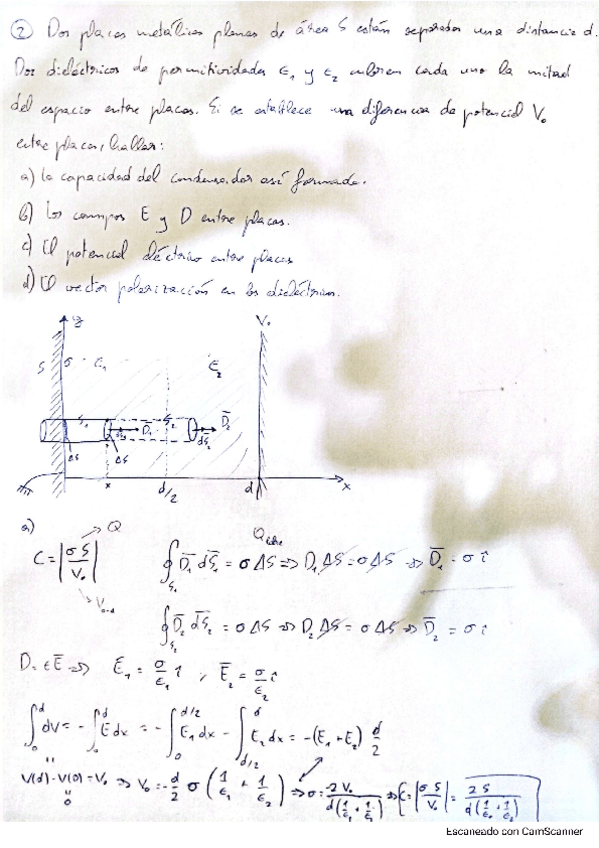 ② Dos placas metálicas planas de área S están separadas una distancia d.
Dos dieléctricos de permitividades ε₁ y ε₂ cubren cada uno la mitad
del espacio entre placas. Si se establece una diferencia de potencial V₀
entre placas, hallar:
a) La capacidad del condensador así formado.
b) Los campos E y D entre placas.
c) El potencial eléctrico entre placas
d) El vector polarización en los dieléctricos.
y V₀
S σ ε₁ ε₂
S₁ D̄₁ S₂ D̄₂
dS̄₁ dS̄₂
ΔS ΔS
x d/2 d x
a) Q Q
C = |σS/V₀| ∮_S₁ D̄₁ dS̄₁ = σΔS ⇒ D₁ΔS = σΔS ⇒ D̄₁ = σ î
∮_S₂ D̄₂ dS̄₂ = σΔS ⇒ D₂ΔS = σΔS ⇒ D̄₂ = σ î
D = εĒ ⇒ Ē₁ = σ/ε₁ î , Ē₂ = σ/ε₂ î
∫₀^d dV = -∫₀^d Ē dx = -∫₀^{d/2} E₁ dx - ∫_{d/2}^d E₂ dx = -(E₁ + E₂) d/2
V(d) - V(0) = V₀ ⇒ V₀ = -d/2 σ (1/ε₁ + 1/ε₂) ⇒ σ = -2V₀/d(1/ε₁ + 1/ε₂) ⇒ C = |σS/V₀| = 2S/d(1/ε₁ + 1/ε₂)
0
Escaneado con CamScanner